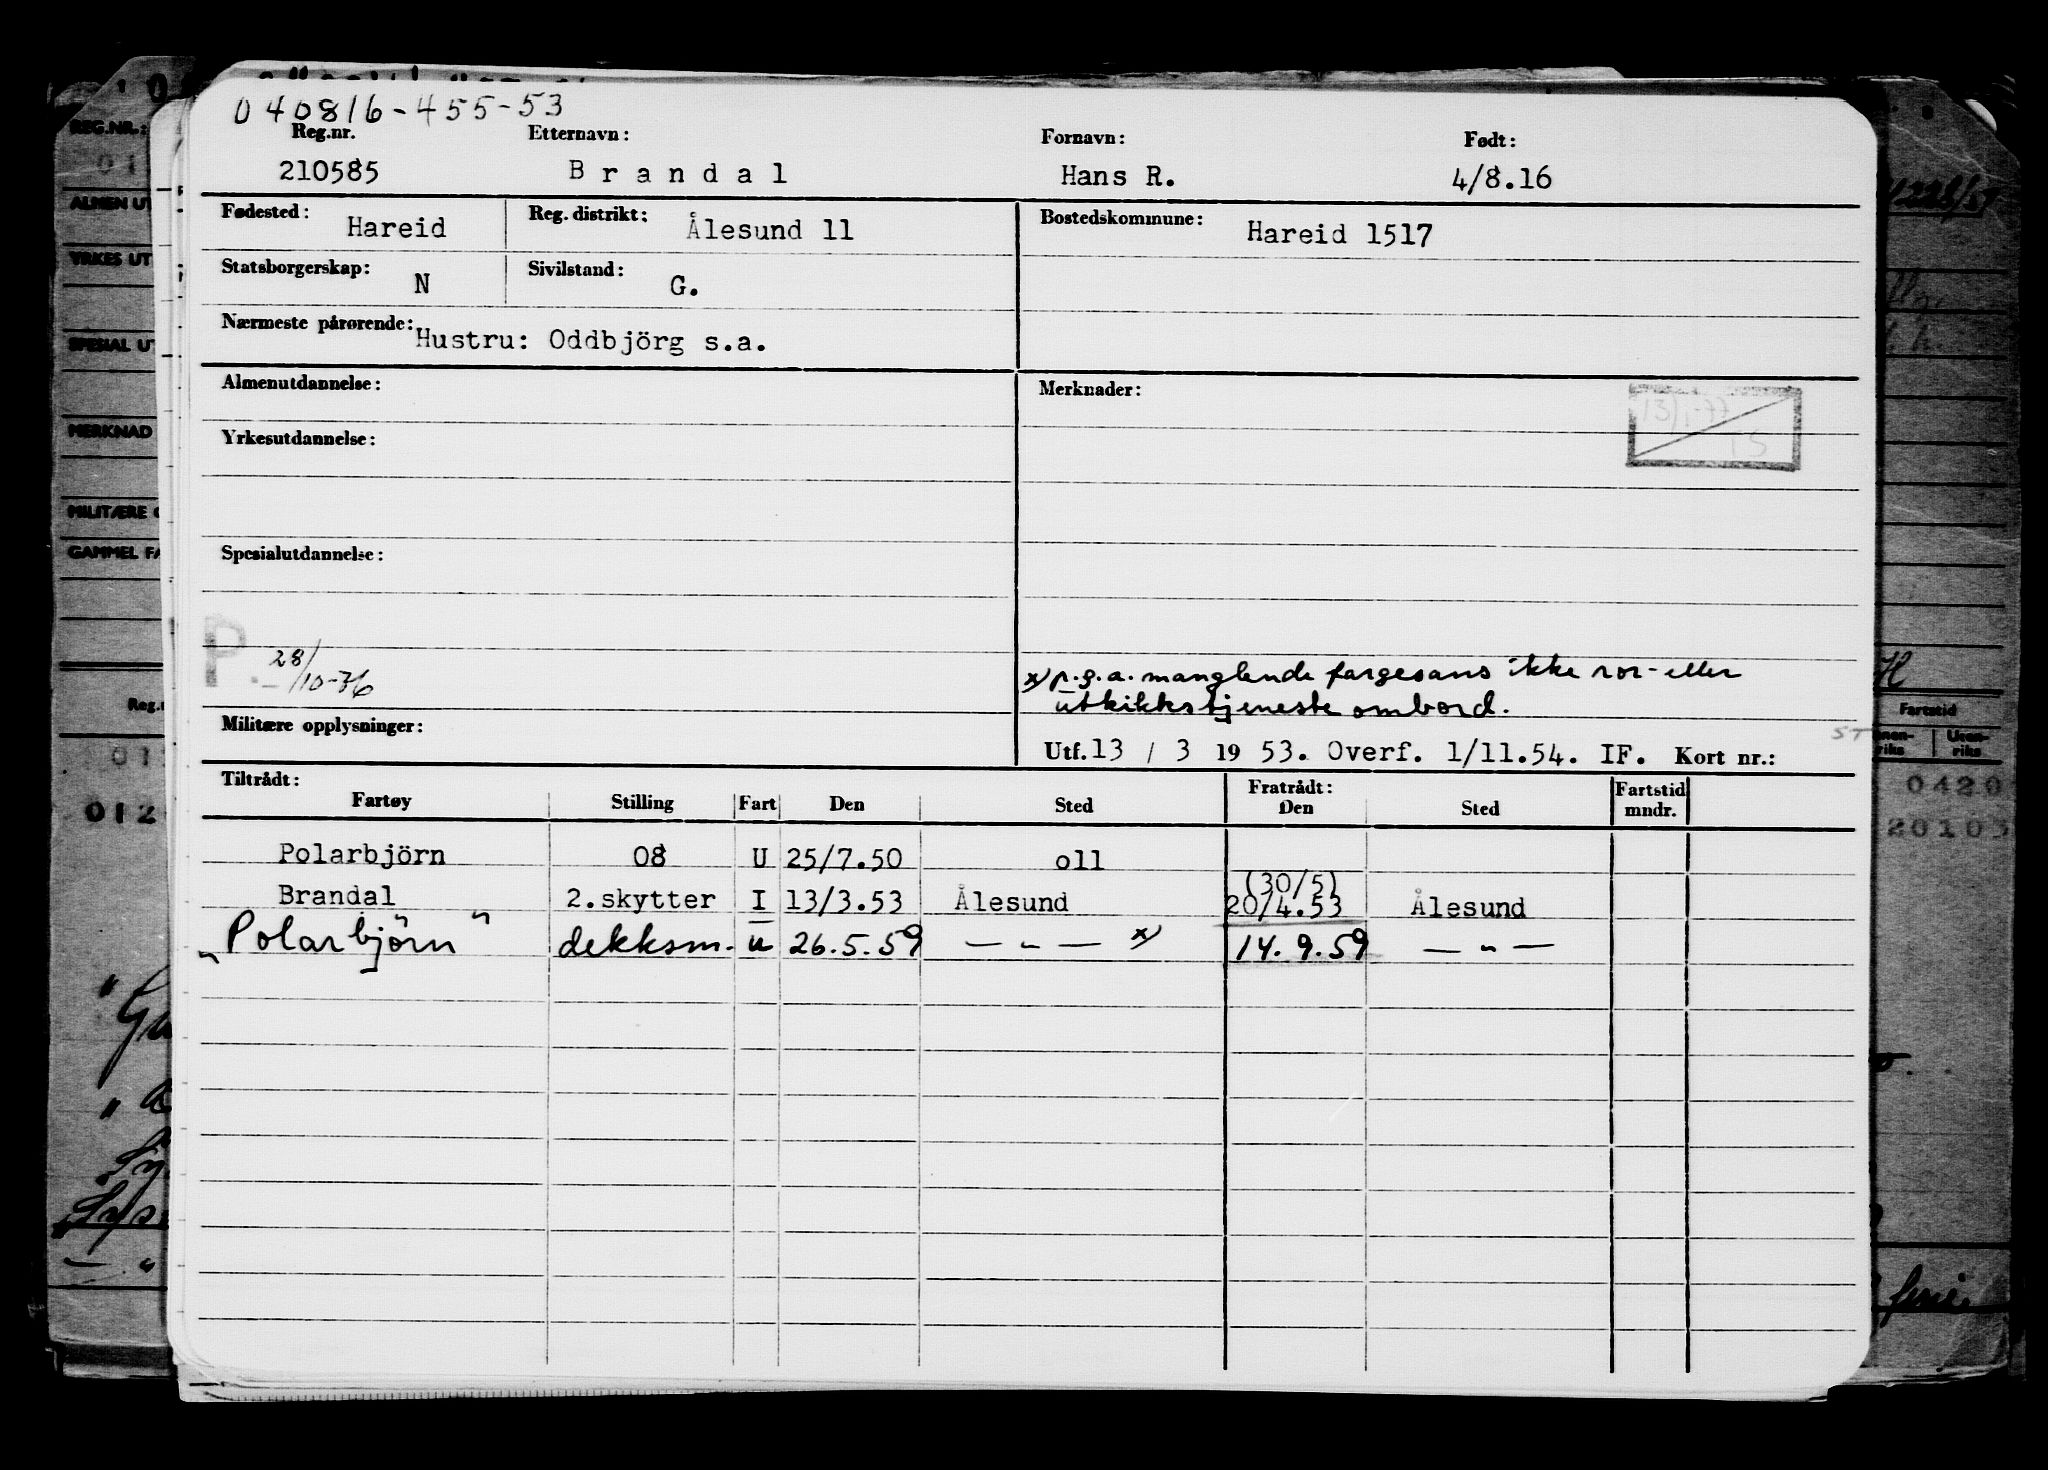 040816-455-53
Reg.nr. Etternavn: Fornavn: Født:
210585 Brandal Hans R. 4/8.16
Fødested: Hareid Reg. distrikt: Ålesund 11 Bostedskommune: Hareid 1517
Statsborgerskap: N Sivilstand: G.
Nærmeste pårørende: Hustru: Oddbjörg s.a.
Almenutdannelse: Merknader:
13/1-77
Yrkesutdannelse:
Spesialutdannelse:
P. 28/10-76
x) p.g.a. manglende fargesans ikke ror- eller
utkikkstjeneste ombord.
Militære opplysninger:
Utf. 13 / 3 19 53. Overf. 1/11.54. IF. Kort nr.:
Tiltrådt: Fratrådt: Fartstid
Fartøy Stilling Fart Den Sted Den Sted mndr.
Polarbjörn 08 U 25/7.50 oll
(30/5)
Brandal 2.skytter I 13/3.53 Ålesund 20/4.53 Ålesund
"Polarbjörn" dekksm. u 26.5.59 — " — x) 14.9.59 — " —
REG.NR.:
ALMEN UT
YRKES UT
SPESIAL UT
MERKNAD
MILITÆRE
GAMMEL
Fartstid
0420